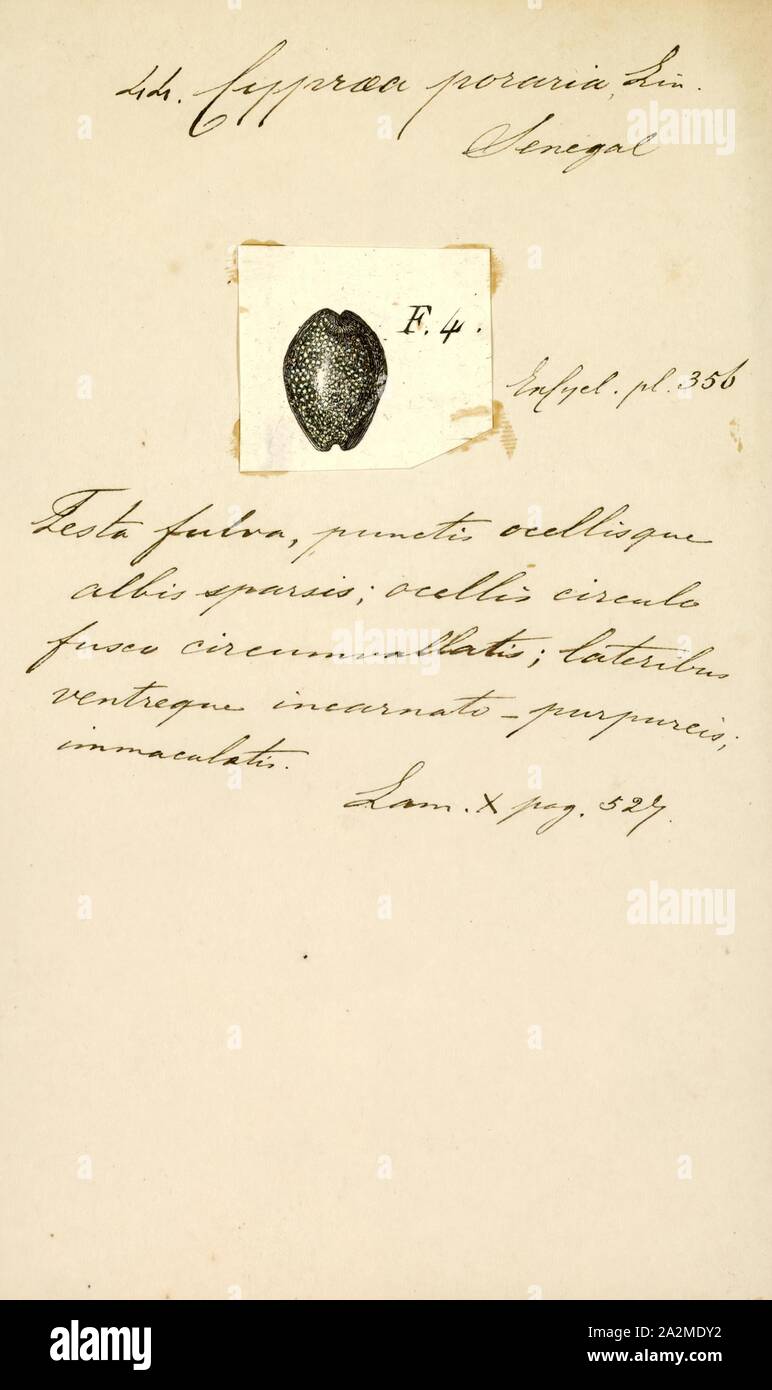 44. Cypræa poraria, Lin.
Senegal
F. 4.
Encycl. pl. 356
Testa fulva, punctis ocellisque
albis sparsis; ocellis circulo
fusco circumvallatis; lateribus
ventreque incarnato-purpureis;
immaculatis.
Lam. X pag. 527.
a alamy
alamy
Image ID: 2A2MDY2
www.alamy.com